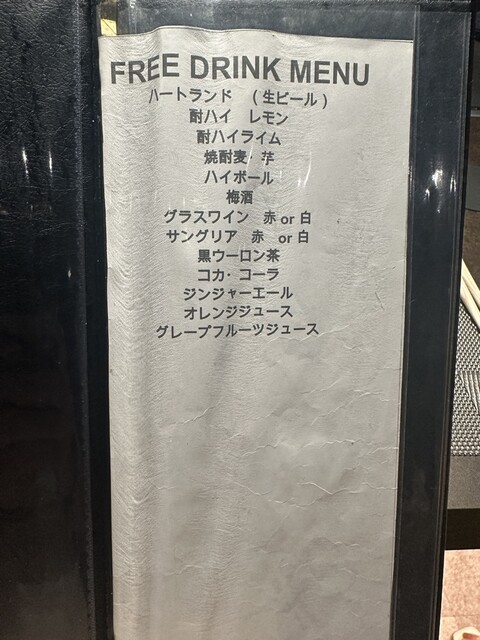 FREE DRINK MENU
ハートランド （生ビール）
酎ハイ レモン
酎ハイライム
焼酎麦・芋
ハイボール
梅酒
グラスワイン 赤 or 白
サングリア 赤 or 白
黒ウーロン茶
コカ・コーラ
ジンジャーエール
オレンジジュース
グレープフルーツジュース